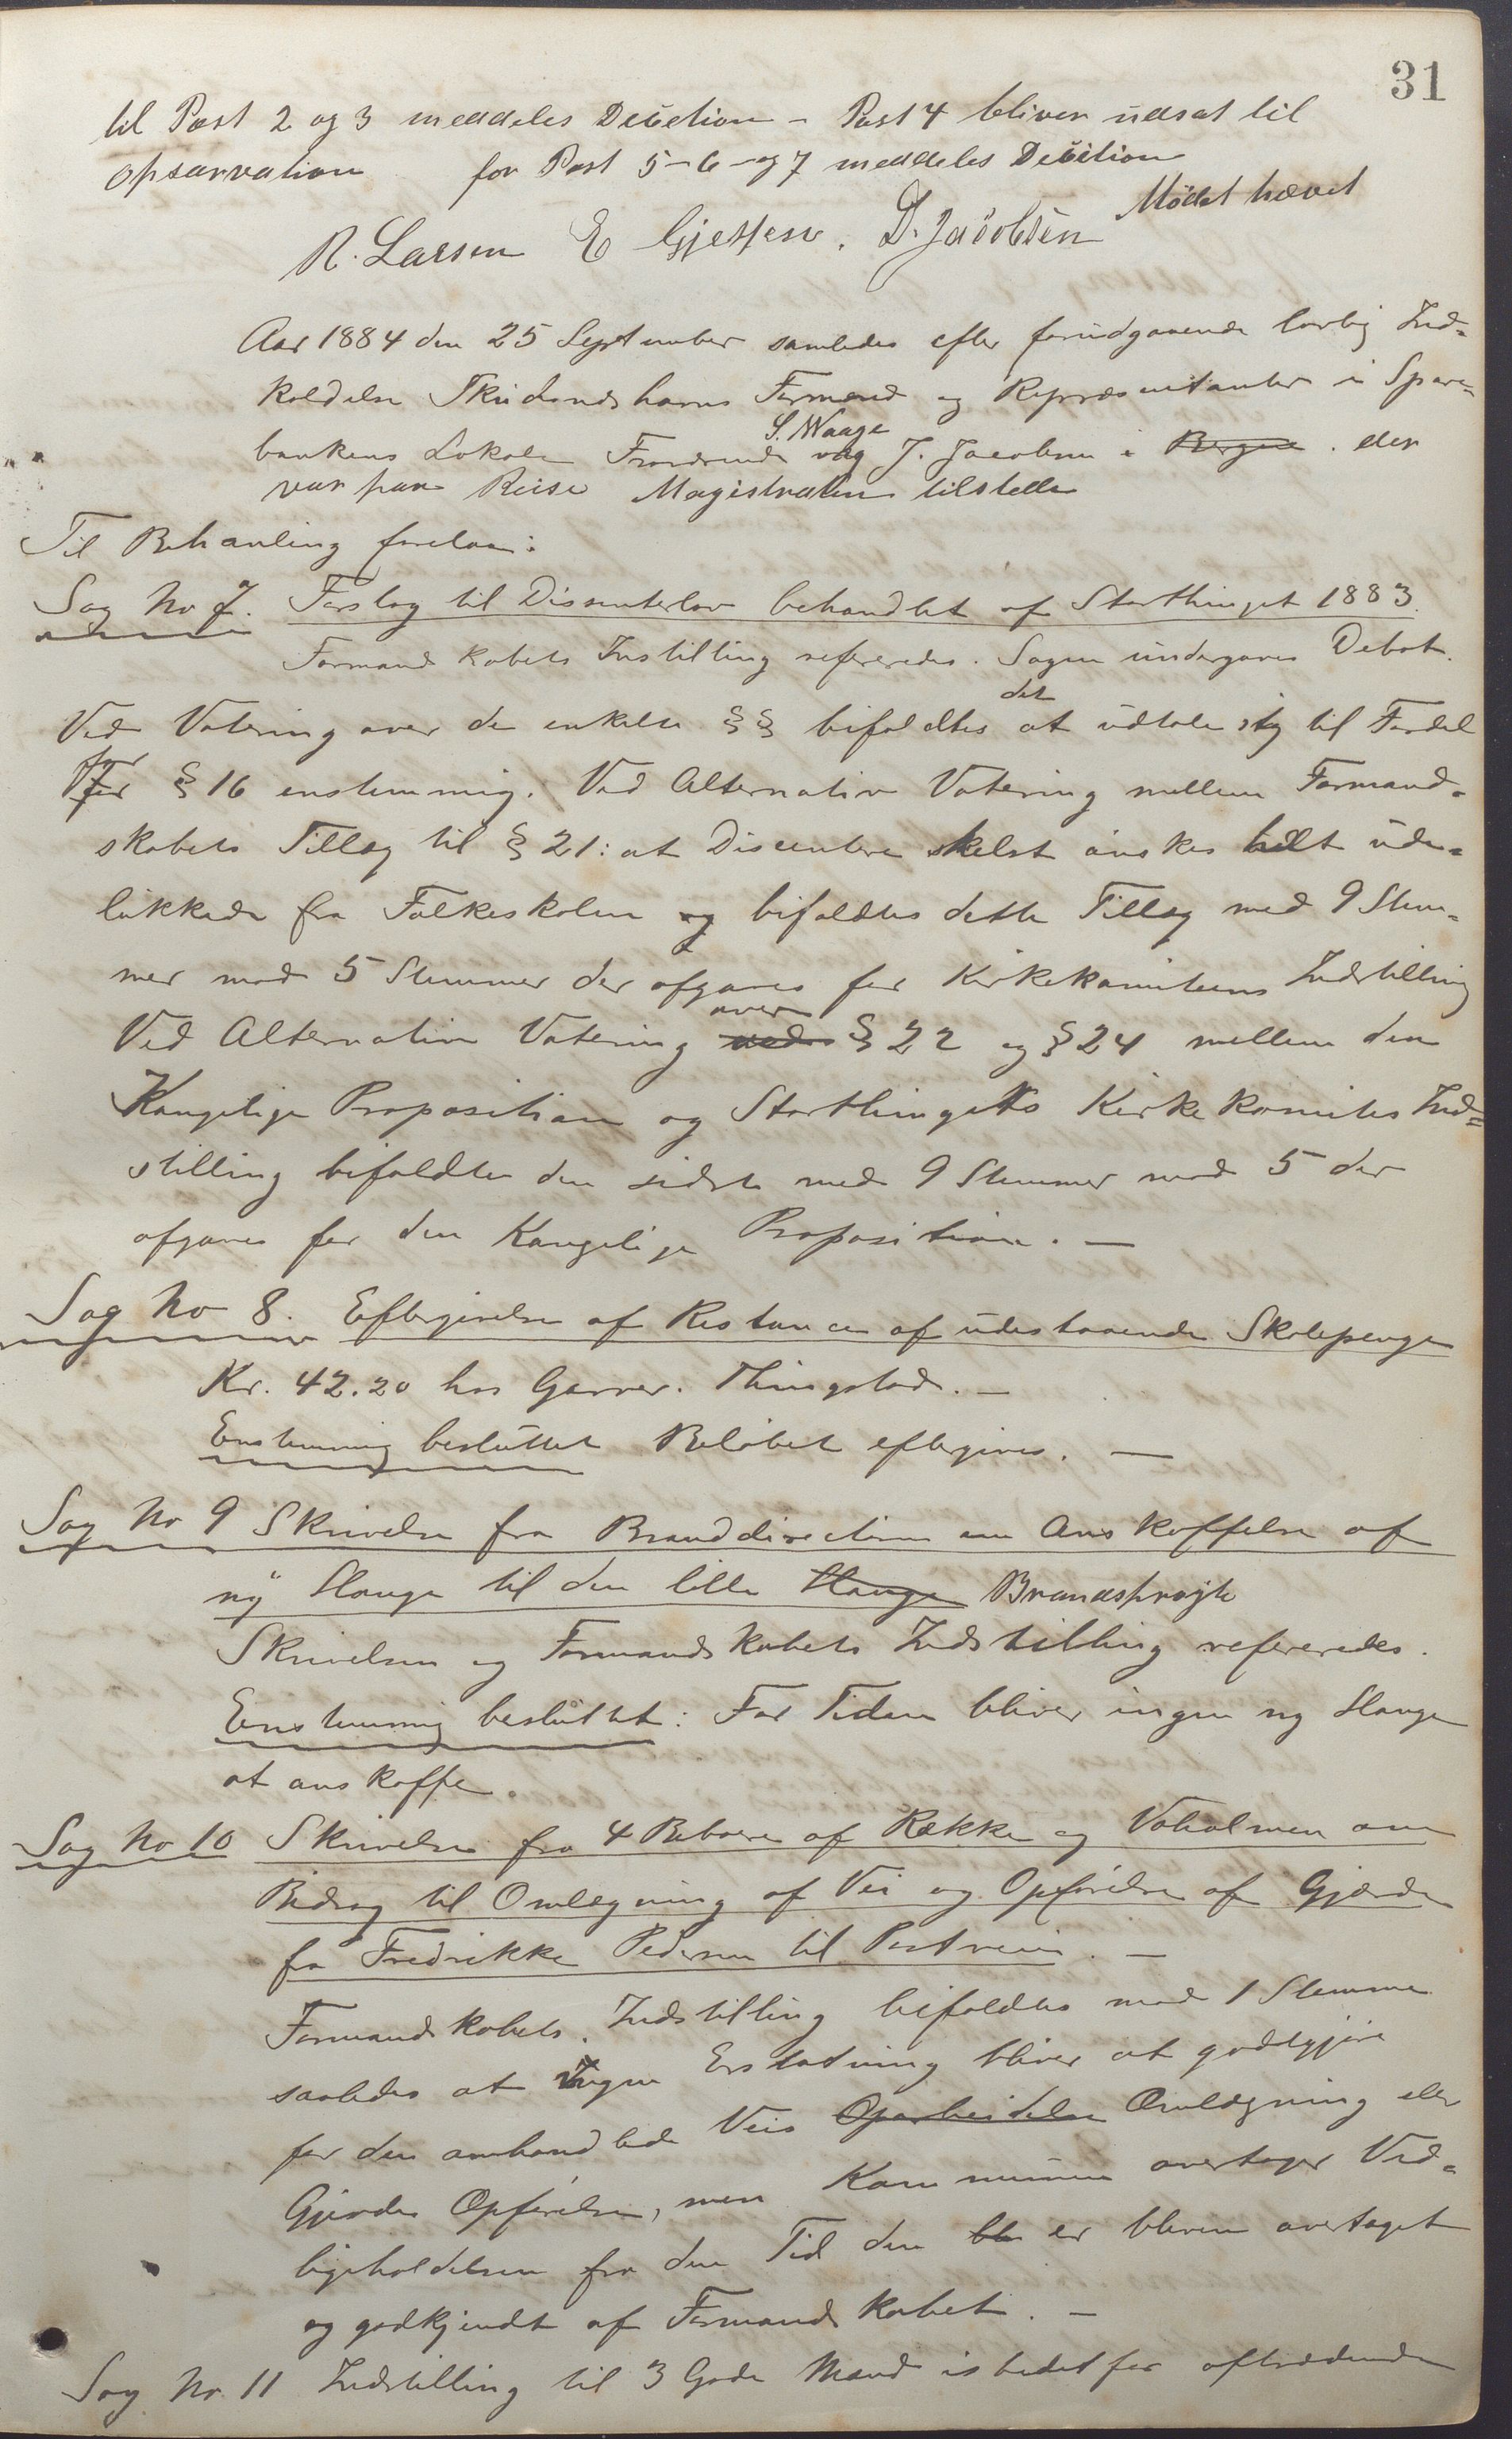 31
til Post 2 og 3 meddeles Decition – Post 4 bliver udsat til
opsarvation for Post 5–6–og 7 meddeles Decition
Mødet hævet
R. Larsen E Gjessen. D. Jacobsen
Aar 1884 den 25 September samledes efter forudgaaende lovlig Ind=
kaldelse Skudesneshavns Formænd og Repræsentanter i Spare=
S. Waage
bankens Lokale Fraværende vag J. Jacobsen i Bergen. der
var paa Reise Magistraten tilstede
Til Behanling forelaa:
Sag No 7. Forslag til Dissenterlov behandlet af Storthinget 1883.
Formandskabets Instilling refereredes. Sagen undergaves Debat.
det
Ved Votering over de enkelte §§ bifaldtes at udtale sig til Fordel
for
for § 16 enstemmig. Ved Alternativ Votering mellem Formand=
skabets Tillæg til § 21: at Discentere helst ønskes helt ude=
lukkede fra Folkeskolen og bifaldtes dette Tillæg med 9 Stem=
mer mod 5 Stemmer der afgaves for Kirkekomiteens Indstilling
over
Ved Alternativ Votering ved § 22 og § 24 mellem den
Kongelige Proposition og Storthingets Kirkekomites Ind=
stilling bifaldtes den sidste med 9 Stemmer mod 5 der
afgaves for den Kongelige Proposition. —
Sag No 8. Eftergivelse af Restance af udestaaende Skolepenge
Kr. 42.20 hos Garver. Thingstad. —
Enstemmig besluttet Beløbet eftergives. —
Sag No 9 Skrivelse fra Branddirectionen om Anskaffelse af
ny Slange til den lille Slange Brandsprøjte
Skrivelsen og Formandskabets Indstilling refereredes.
Enstemmig besluttet: For Tiden bliver ingen ny Slange
at anskaffe.
Sag No 10 Skrivelse fra 4 Beboere af Række og Vaholmen om
Bidrag til Omlægning af Vei og Opførelse af Gjærde
fra Fredrikke Pedersen til Postveien. —
Formandskabets Indstilling bifaldtes mod 1 Stemme
saaledes at Ingen Erstatning bliver at godtgjøre
for den omhandlede Veis Oparbeidelse Omlægning eller
Gjerdes Opførelse, men Kommunen overtager Ved=
ligeholdelsen fra den Tid den bl er bleven overtaget
og godkjendt af Formandskabet. —
Sag No 11 Indstilling til 3 Gode Mænd istedetfor aftrædende